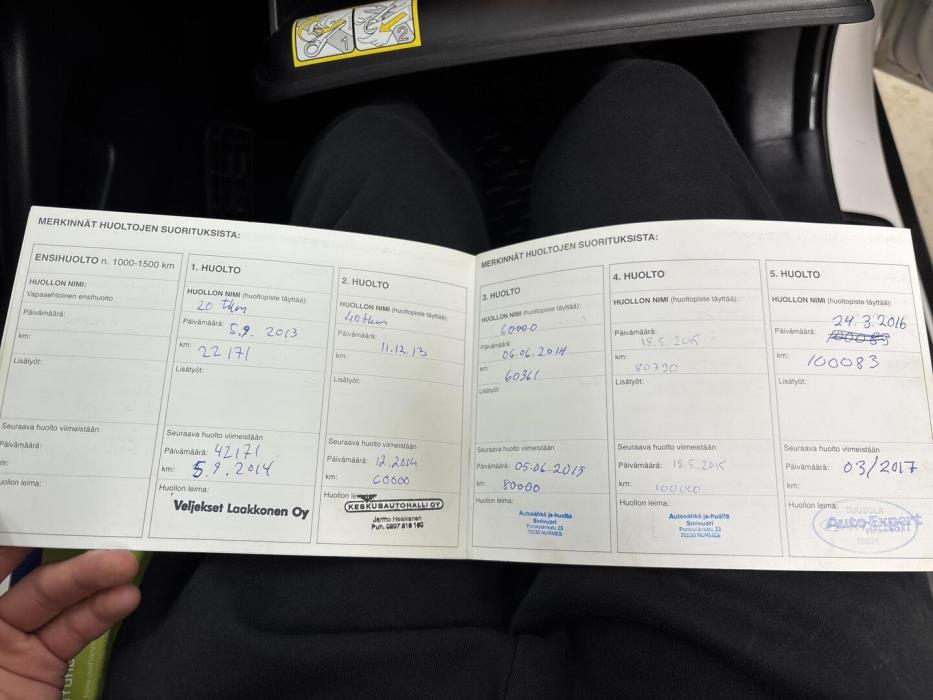 1
2
MERKINNÄT HUOLTOJEN SUORITUKSISTA:
ENSIHUOLTO n. 1000-1500 km
HUOLLON NIMI:
Vapaaehtoinen ensihuolto
Päivämäärä:
km:
Lisätyöt:
Seuraava huolto viimeistään
Päivämäärä:
km:
Huollon leima:
1. HUOLTO
HUOLLON NIMI (huoltopiste täyttää):
20 tkm
Päivämäärä: 5.9. 2013
km: 22171
Lisätyöt:
Seuraava huolto viimeistään
Päivämäärä: 42171
km: 5.9.2014
Huollon leima:
Veljekset Laakkonen Oy
2. HUOLTO
HUOLLON NIMI (huoltopiste täyttää):
40tkm
Päivämäärä: 11.12.13
km:
Lisätyöt:
Seuraava huolto viimeistään
Päivämäärä: 12.2014
km: 60000
Huollon leima:
KESKUSAUTOHALLI OY
Jarmo Heiskanen
MERKINNÄT HUOLTOJEN SUORITUKSISTA:
3. HUOLTO
HUOLLON NIMI (huoltopiste täyttää):
60000
Päivämäärä: 06.06.2014
km: 60361
Lisätyöt:
Seuraava huolto viimeistään
Päivämäärä: 05.06.2015
km: 80000
Huollon leima:
Autosähkö ja-huolto
Sinivuori
75530 NURMES
4. HUOLTO
HUOLLON NIMI (huoltopiste täyttää):
Päivämäärä: 18.5.2015
km: 80790
Lisätyöt:
Seuraava huolto viimeistään
Päivämäärä: 18.5.2015
km: 100000
Huollon leima:
Autosähkö ja-huolto
Sinivuori
75530 NURMES
5. HUOLTO
HUOLLON NIMI (huoltopiste täyttää):
24.3.2016
Päivämäärä: 100083
km: 100083
Lisätyöt:
Seuraava huolto viimeistään
Päivämäärä: 03/2017
km:
Huollon leima:
TUUSULA
AutoExpert